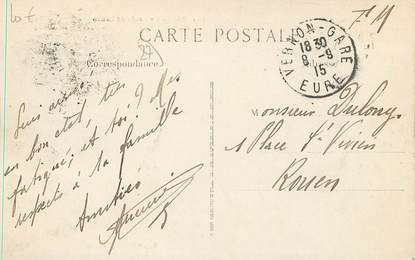 Lot
27
F M
CARTE POSTALE
Correspondance
VERNON-GARE
18 30
8 -8
15
EURE
Suis arrivé
en bon état, très
fatigué; et toi? Mes
respects à ta famille
Amitiés
Monsieur Dulong
1 Place St Vivien
Rouen